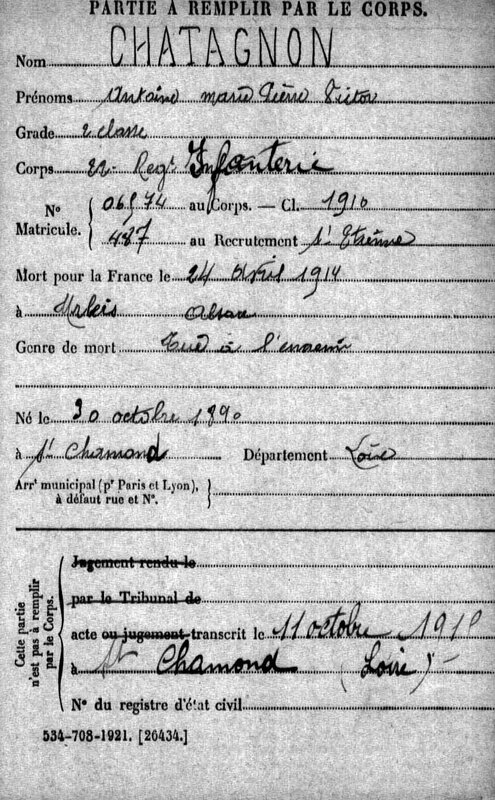 PARTIE À REMPLIR PAR LE CORPS.
Nom CHATAGNON
Prénoms Antoine marie Pierre Victor
Grade 2 classe
Corps 22e Regt Infanterie
N° Matricule. au Corps. — Cl. 1910
487 au Recrutement St Etienne
Mort pour la France le 24 avril
à Alsace
Genre de mort Tué à l'ennemi
Né le 30 octobre 1890
à St Chamond Département Loire
Arrt municipal (pr Paris et Lyon),
à défaut rue et N°.
Cette partie n'est pas à remplir par le Corps.
Jugement rendu le
par le Tribunal de
acte ou jugement transcrit le 11 octobre
à St Chamond (Loire)
N° du registre d'état civil
534-708-1921. [26434.]